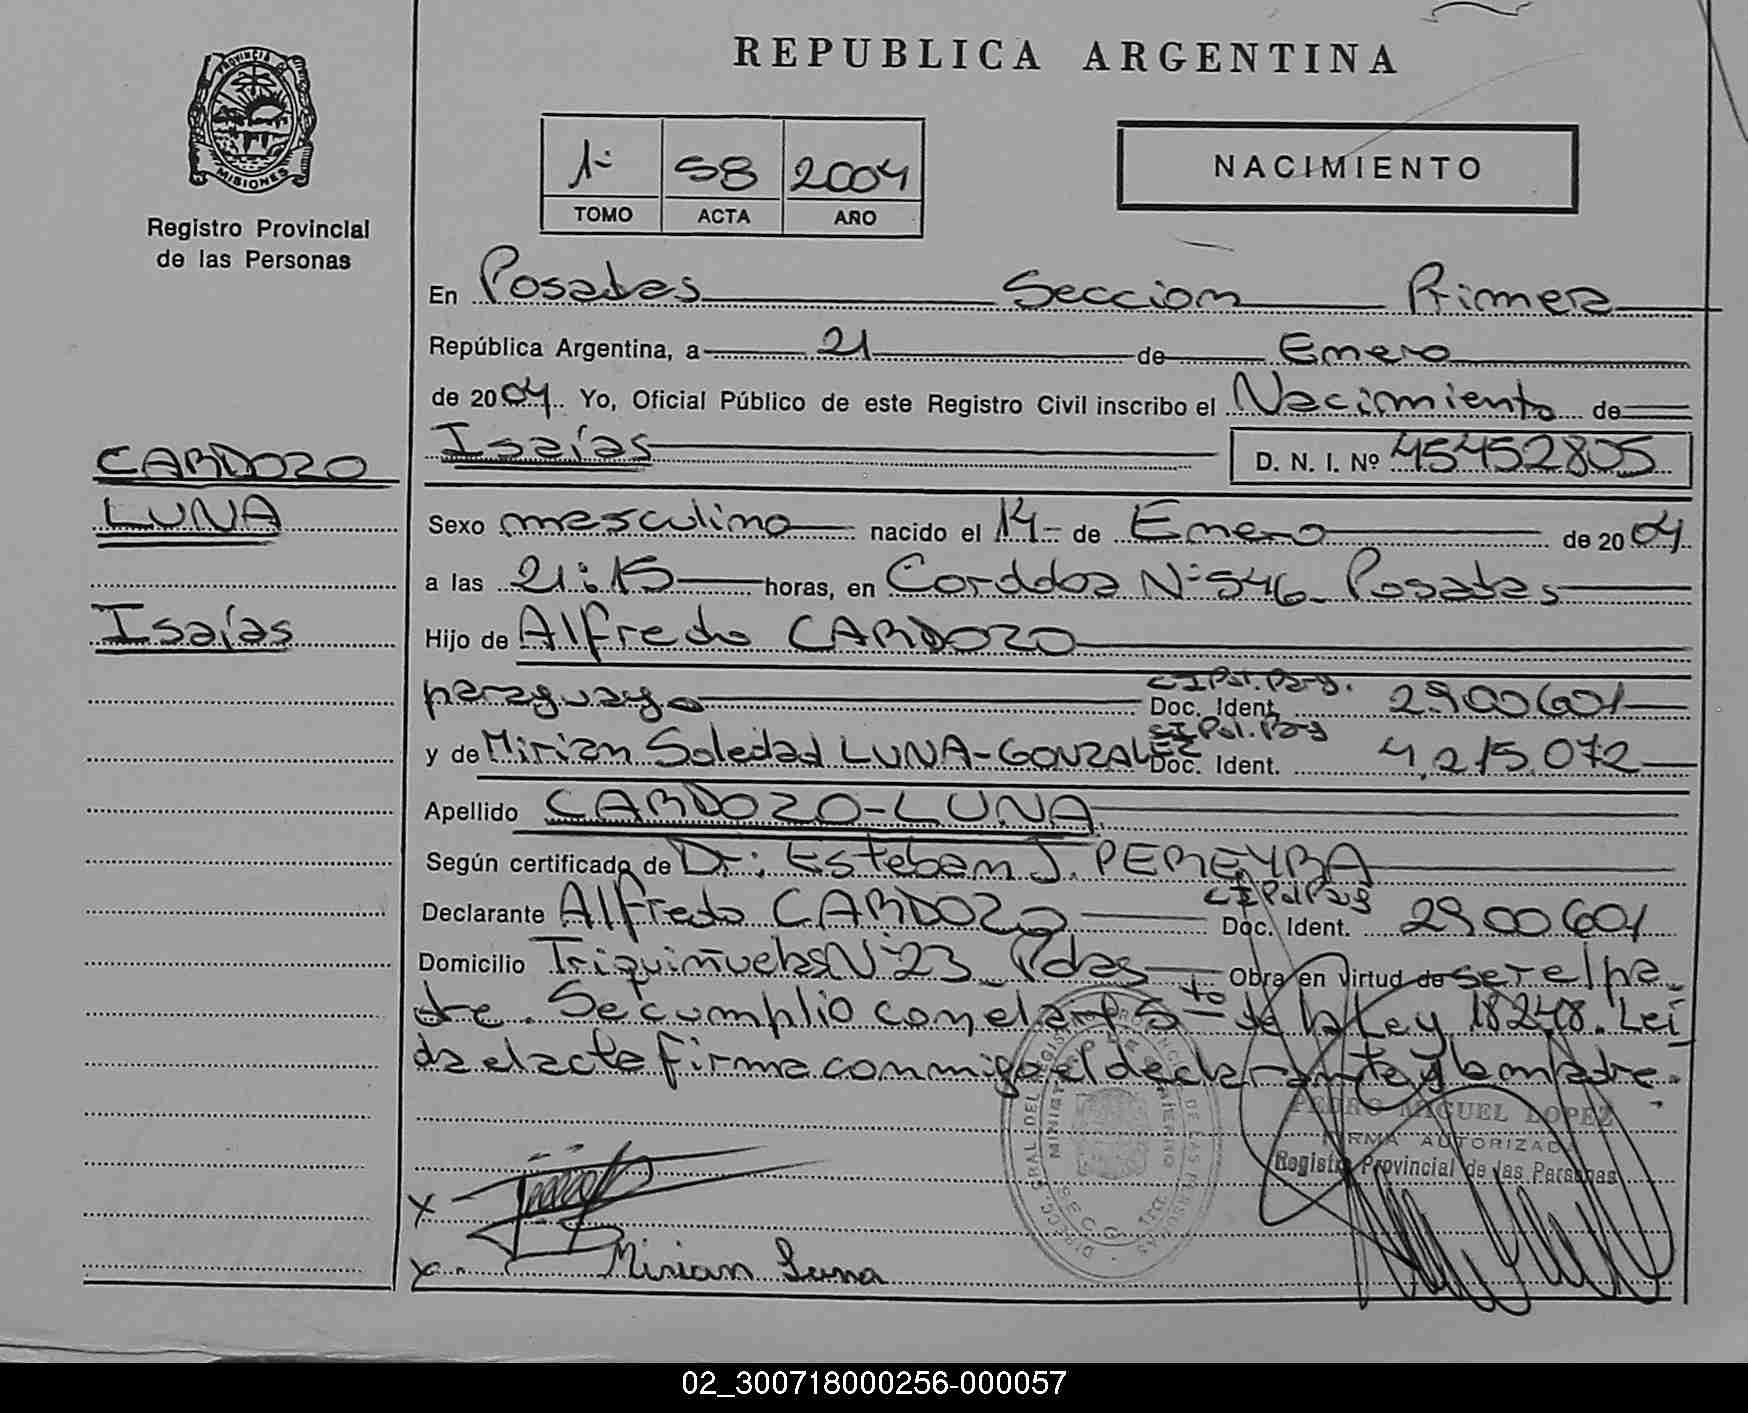 REPUBLICA ARGENTINA
PROVINCIA DE
MISIONES
Registro Provincial
de las Personas
1º 58 2004
TOMO ACTA AÑO
NACIMIENTO
En Posadas Seccion Primera
República Argentina, a 21 de Enero
de 2004 Yo, Oficial Público de este Registro Civil inscribo el Nacimiento de
Isaías D. N. I. Nº 45452805
CARDOZO
LUNA
Isaías
Sexo masculino nacido el 14 de Enero de 2004
a las 21:15 horas, en Cordoba Nº 546 Posadas
Hijo de Alfredo CARDOZO
paraguayo CI Pol. Parg. Doc. Ident. 2900601
y de Mirian Soledad LUNA-GONZALEZ CI Pol. Parg Doc. Ident. 4.215.072
Apellido CARDOZO-LUNA
Según certificado de Dr: Esteban J. PEREYRA
Declarante Alfredo CARDOZO CI Pol Parg Doc. Ident. 2900601
Domicilio Triquiñuelas Nº 23 Pdas Obra en virtud de ser el pa
dre. Se cumplio con el art 5to de la Ley 18248. Leí
da el acta firma conmigo el declarante y la madre.
PEDRO MIGUEL LOPEZ
FIRMA AUTORIZADA
Registro Provincial de las Personas
X
X Mirian Luna
02_300718000256-000057